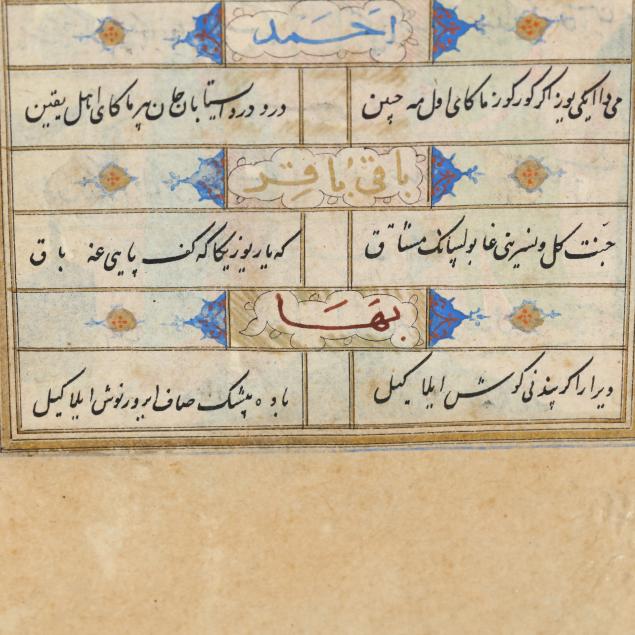 احمد
می دا ایکی یوز اکر کورکوز ماکای اول مه جبین
درد درد ایستابان جان بیر ماکای اهل یقین
باقی باقر
جنت کل و نسرینی غا بولسانک مشتاق
که یار یوزیکا که کف پایی غه باق
بها
ویرار اکر پندنی کوش ایلاکیل
باده پیشک صاف ایرور نوش ایلاکیل